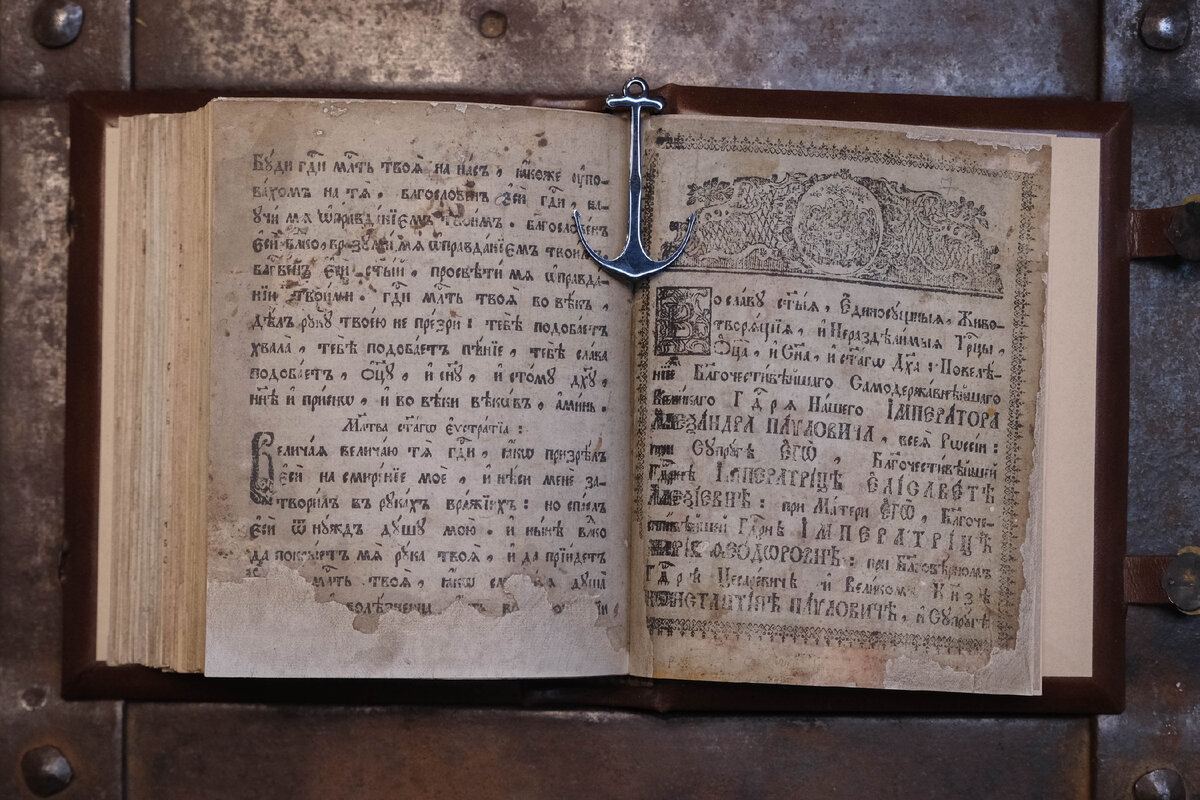 Бꙋ́ди гдⷭ҇и мл҃ть твоѧ̀ на на́съ, ꙗ҆́коже ᲂу҆по-
ва́хомъ на тѧ̀. блг҃ослове́нъ є҆сѝ гдⷭ҇и, на-
ꙋчи́ мѧ ѡ҆правда́нїємъ твои́мъ. блг҃ослове́нъ
є҆сѝ влⷣко, вразꙋми́ мѧ ѡ҆правда́нїємъ твои́мъ.
блгⷭ҇ве́нъ є҆сѝ ст҃ы́й, просвѣти́ мѧ ѡ҆правда́-
нїи твои́ми. гдⷭ҇и мл҃ть твоѧ̀ во вѣ́къ,
дѣ́лъ рꙋкꙋ̀ твоє́ю не пре́зри: тебѣ̀ подоба́єтъ
хвала̀, тебѣ̀ подоба́єтъ пѣ́нїе, тебѣ̀ сла́ва
подоба́єтъ, ѻ҆ц҃ꙋ̀, и҆ сн҃ꙋ, и҆ ст҃о́мꙋ дх҃ꙋ,
нн҃ѣ и҆ при́снѡ, и҆ во вѣ́ки вѣкѡ́въ, а҆ми́нь.
Мл҃тва ст҃а́гѡ є҆ѵстра́тїа:
Велича́ѧ велича́ю тѧ̀ гдⷭ҇и, ꙗ҆́кѡ призрѣ́лъ
є҆сѝ на смире́нїе моѐ, и҆ нѣ́си менѐ за-
твори́лъ въ рꙋка́хъ вра́жїихъ: но спⷭ҇лъ
є҆сѝ ѿ нꙋ́ждъ дꙋ́шꙋ мою̀. и҆ ны́нѣ влⷣко
да покры́єтъ мѧ̀ рꙋка̀ твоѧ̀, и҆ да прїи́детъ
мл҃ть твоѧ̀, ꙗ҆́кѡ дꙋша̀
Во сла́вꙋ ст҃ы́ѧ, Є҆диносꙋ́щныѧ, Живо-
творѧ́щїѧ, и҆ Нераздѣли́мыѧ Трⷪ҇цы,
Ѻ҆ц҃а̀, и҆ Сн҃а, и҆ ст҃а́гѡ Дх҃а: Повелѣ́-
нїе́мъ Бл҃гочести́вѣйшагѡ Самодержа́внѣйшагѡ
Вели́кагѡ Гдⷭ҇рѧ На́шегѡ І҆МПЕРА́ТОРА
А҆ЛЕѮА́НДРА ПА́ѴЛОВИЧА, всеѧ̀ Рѡссі́и:
при Сꙋпрꙋ́гѣ Є҆гѡ̀, Бл҃гочести́вѣйшей
Гдⷭ҇рнѣ І҆МПЕРАТРИ́ЦѢ Є҆ЛІСАВЕ́ТѢ
А҆ЛЕѮІ́ЕВНѢ: при Ма́тери Є҆гѡ̀, Бл҃гоче-
сти́вѣйшей Гдⷭ҇рнѣ І҆МПЕРАТРИ́ЦѢ
МАРІ́И Ѳ҆ЕО́ДѠРОВНѢ: при Бл҃говѣ́рномъ
Гдⷭ҇рѣ Цесаре́вичѣ и҆ Вели́комъ Кнѧ́зѣ
КѠНСТАНТІ́НѢ ПА́ѴЛОВИЧѢ, и҆ Сꙋпрꙋ́гѣ